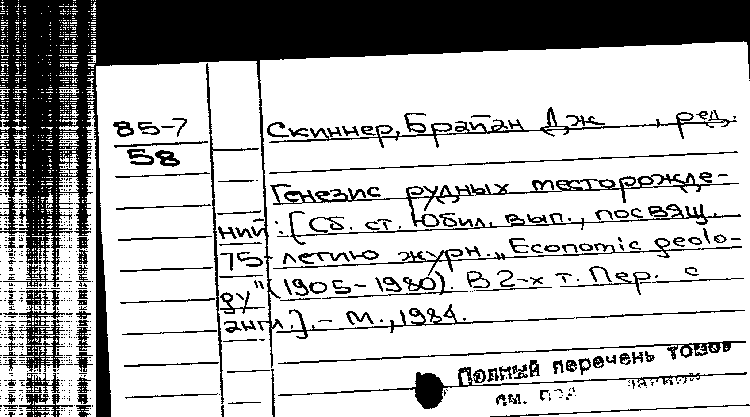 85-7
58
Скиннер, Брайан Дж , ред.
Генезис рудных месторожде-
ний : [Сб. ст. Юбил. вып., посвящ.
75-летию журн. „Economic geolo-
gy" (1905-1980). В 2-х т. Пер. с
англ.]. - М., 1984.
Полный перечень томов
см. под